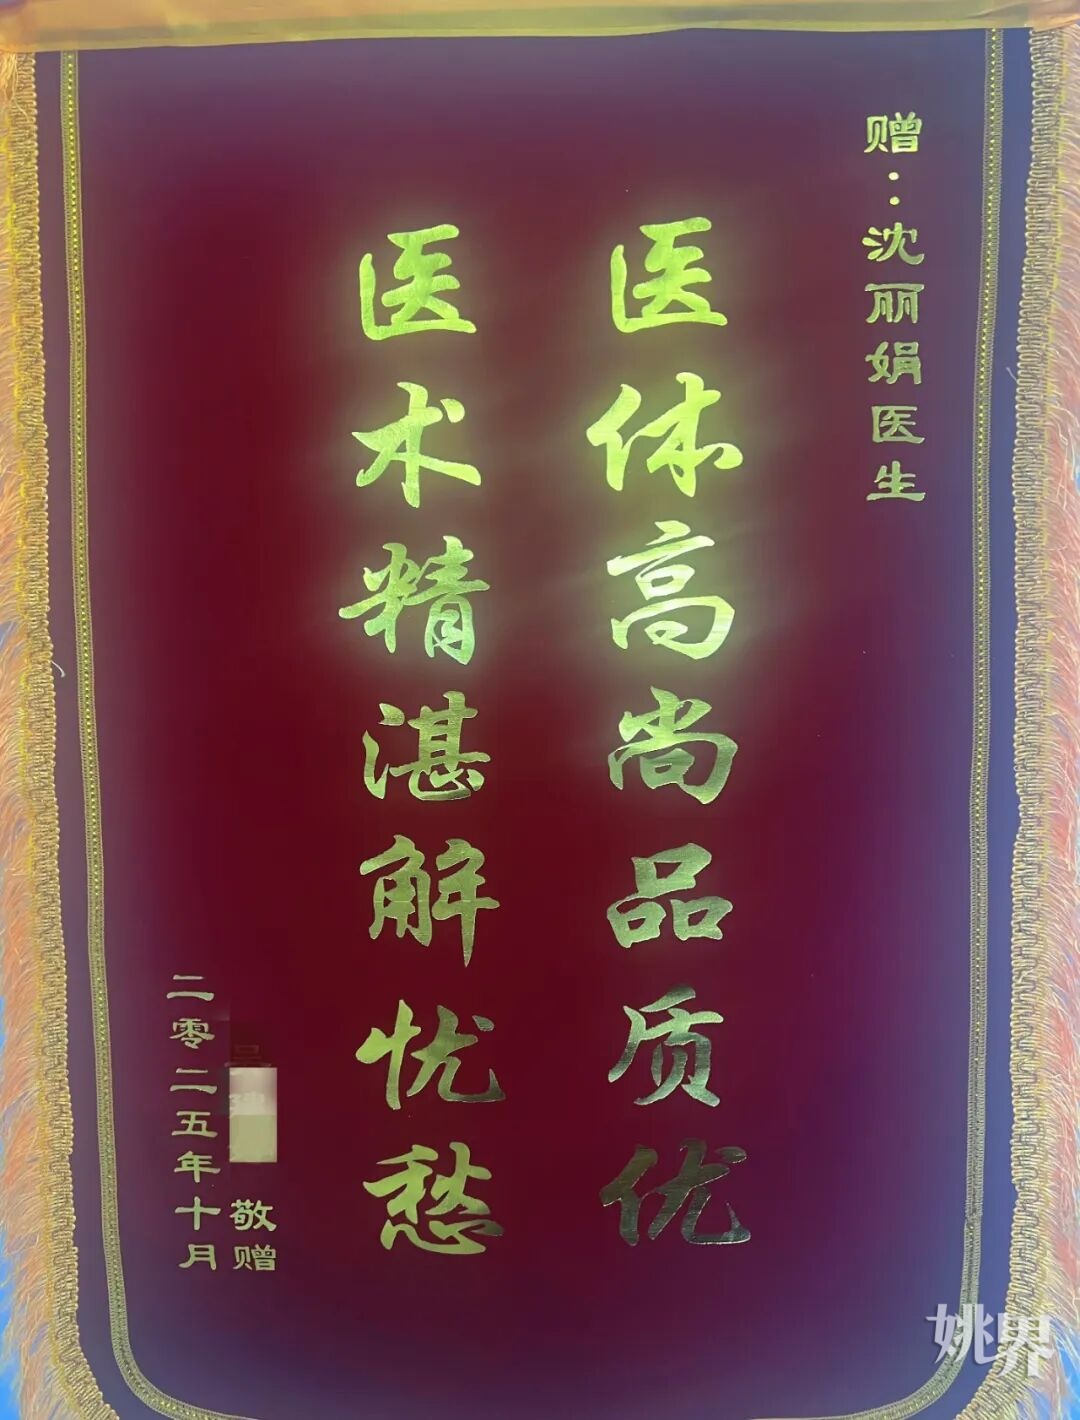 赠:沈丽娟医生
医体高尚品质优
医术精湛解忧愁
敬赠
二零二五年十月
姚界